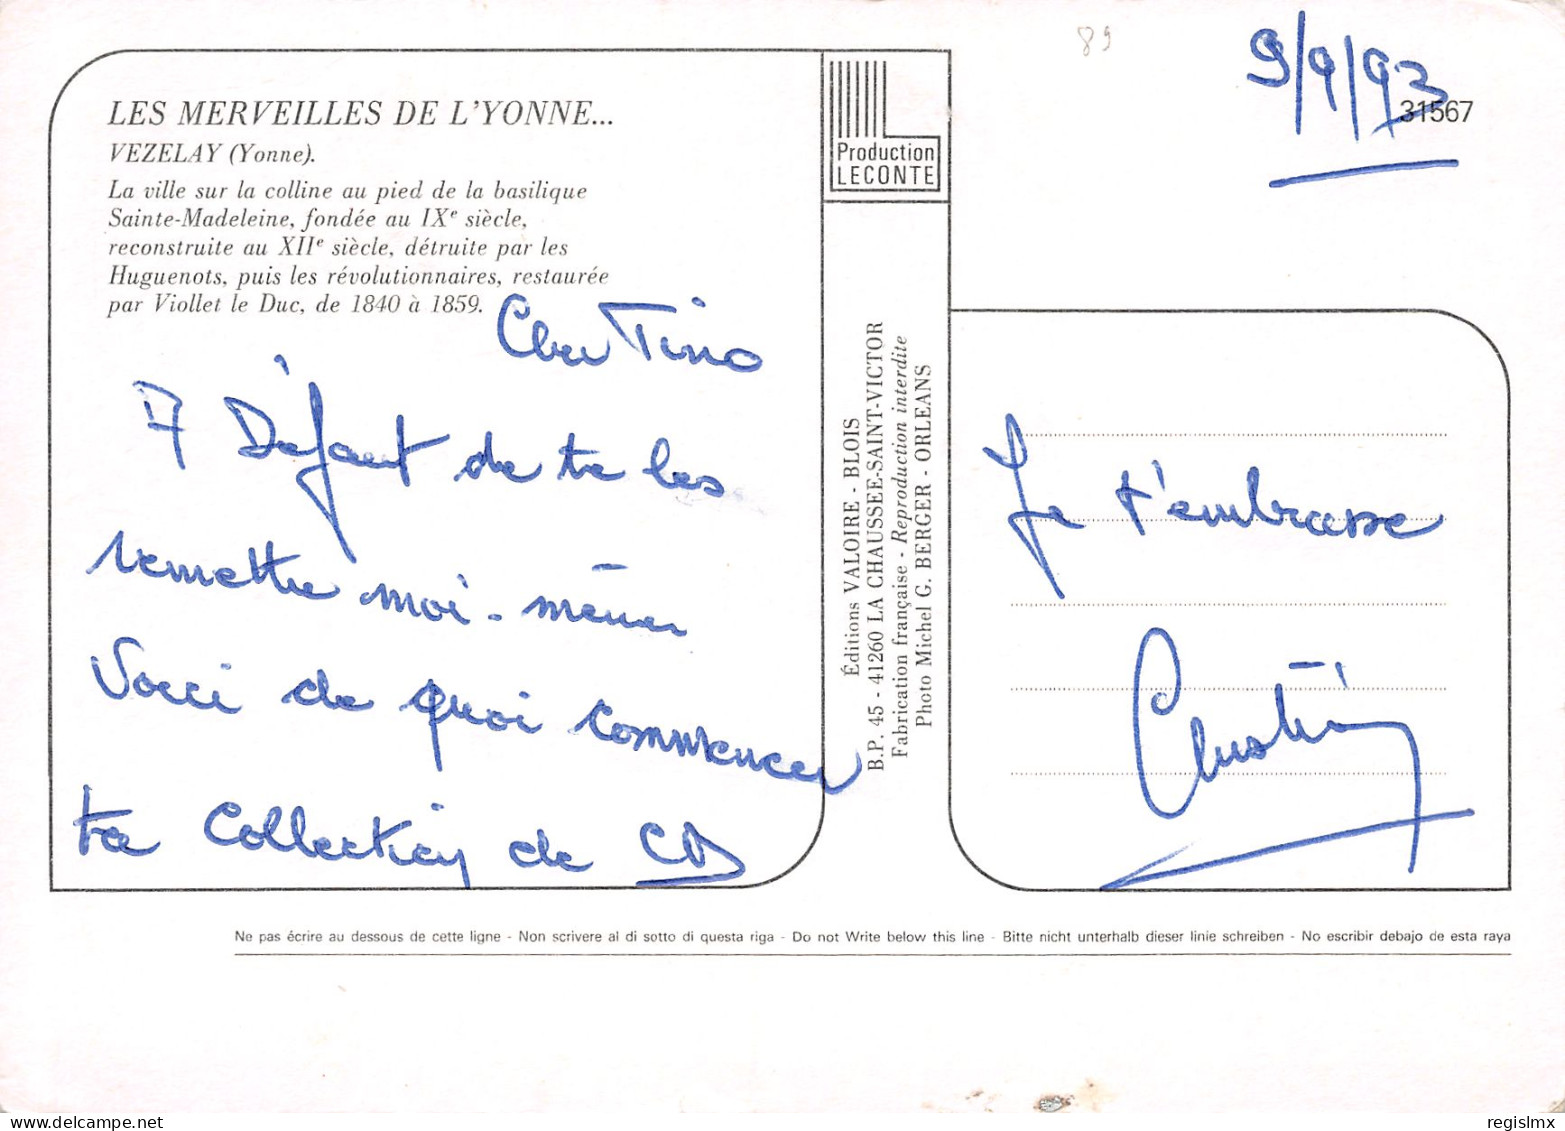 89
9/9/93
31567
LES MERVEILLES DE L'YONNE...
VEZELAY (Yonne).
La ville sur la colline au pied de la basilique
Sainte-Madeleine, fondée au IXe siècle,
reconstruite au XIIe siècle, détruite par les
Huguenots, puis les révolutionnaires, restaurée
par Viollet le Duc, de 1840 à 1859.
Production
LECONTE
Cher Tino
A Défaut de te les
remettre moi-même
Voici de quoi commencer
ta Collection de CD
Éditions VALOIRE - BLOIS
B.P. 45 - 41260 LA CHAUSSEE-SAINT-VICTOR
Fabrication française - Reproduction interdite
Photo Michel G. BERGER - ORLEANS
Je t'embrasse
Christian
Ne pas écrire au dessous de cette ligne - Non scrivere al di sotto di questa riga - Do not Write below this line - Bitte nicht unterhalb dieser linie schreiben - No escribir debajo de esta raya
regislmx